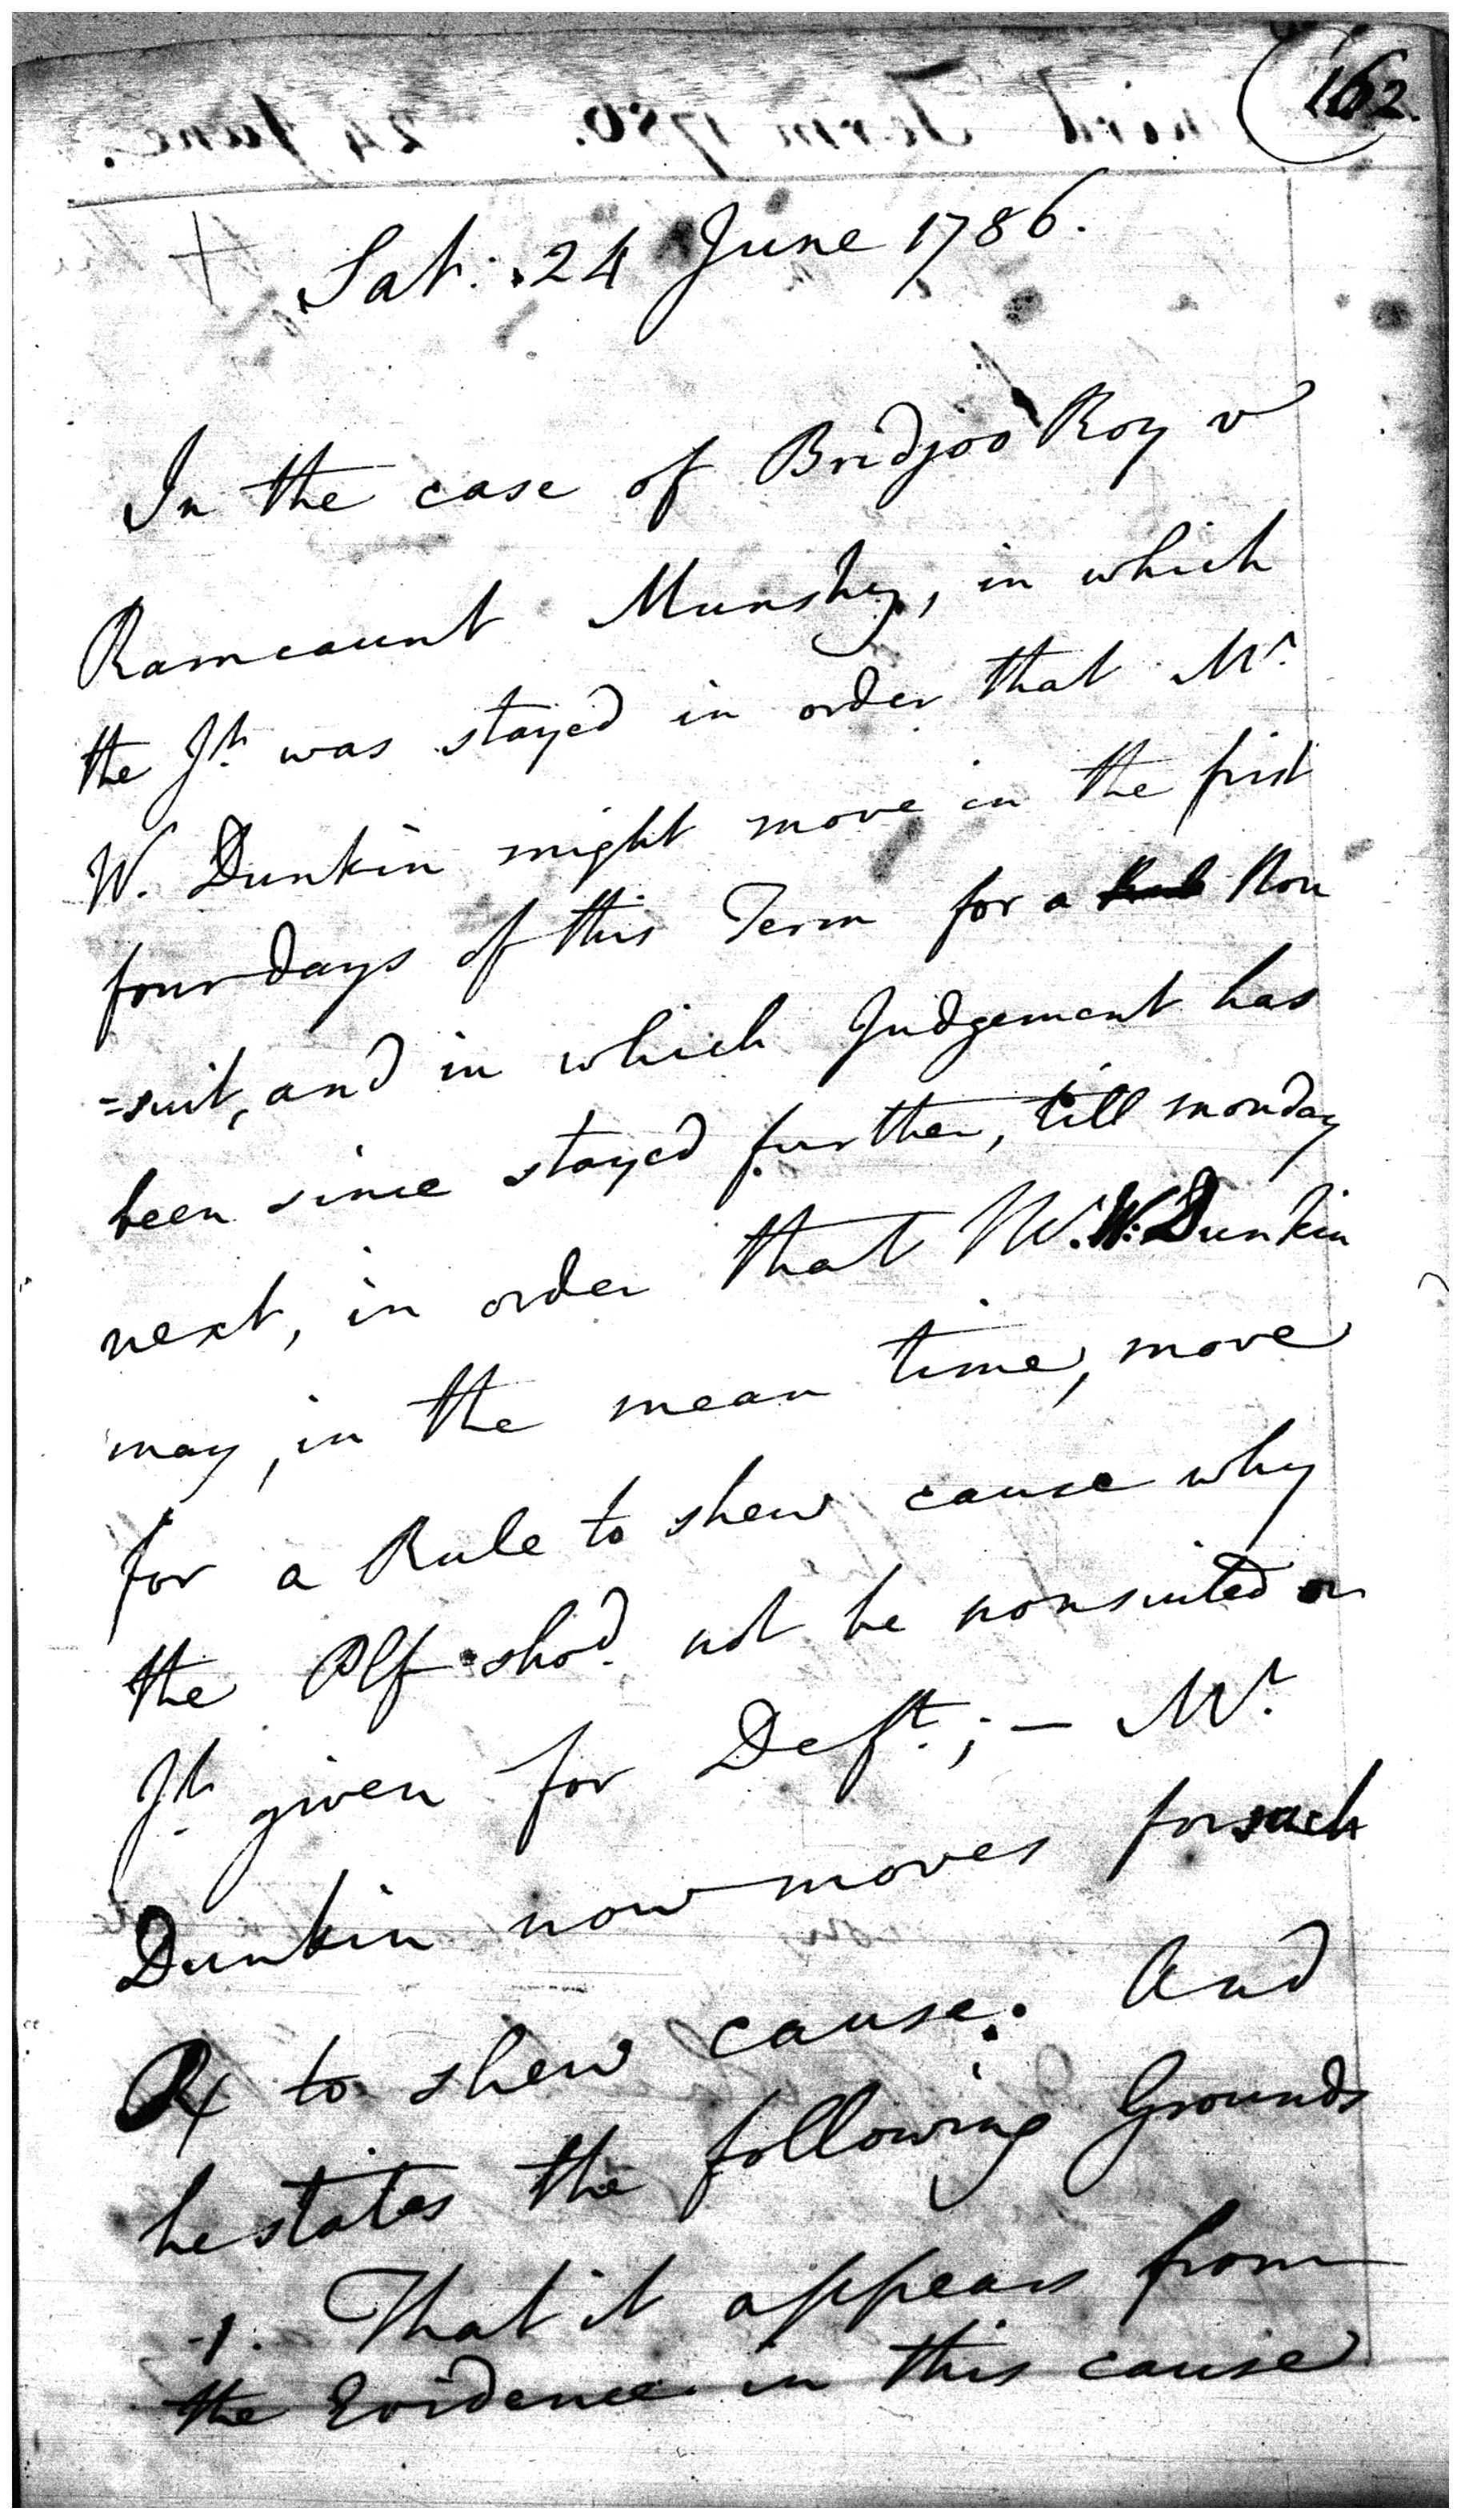 162.
Sat: 24 June 1786.
In the case of Bridjoo Roy v
Ramcaunt Munshy, in which
the Jt. was stayed in order that Mr.
W. Dunkin might move in the first
four days of this Term for a Non
=suit, and in which Judgement has
been since stayed further, till monday
next, in order that Mr. W. Dunkin
may, in the mean time, move
for a Rule to shew cause why
the Plf shod. not be nonsuited or
Jt. given for Deft.; — Mr.
Dunkin now moves for such
R to shew cause: And
he states the following Grounds
1. That it appears from
the Evidence in this cause